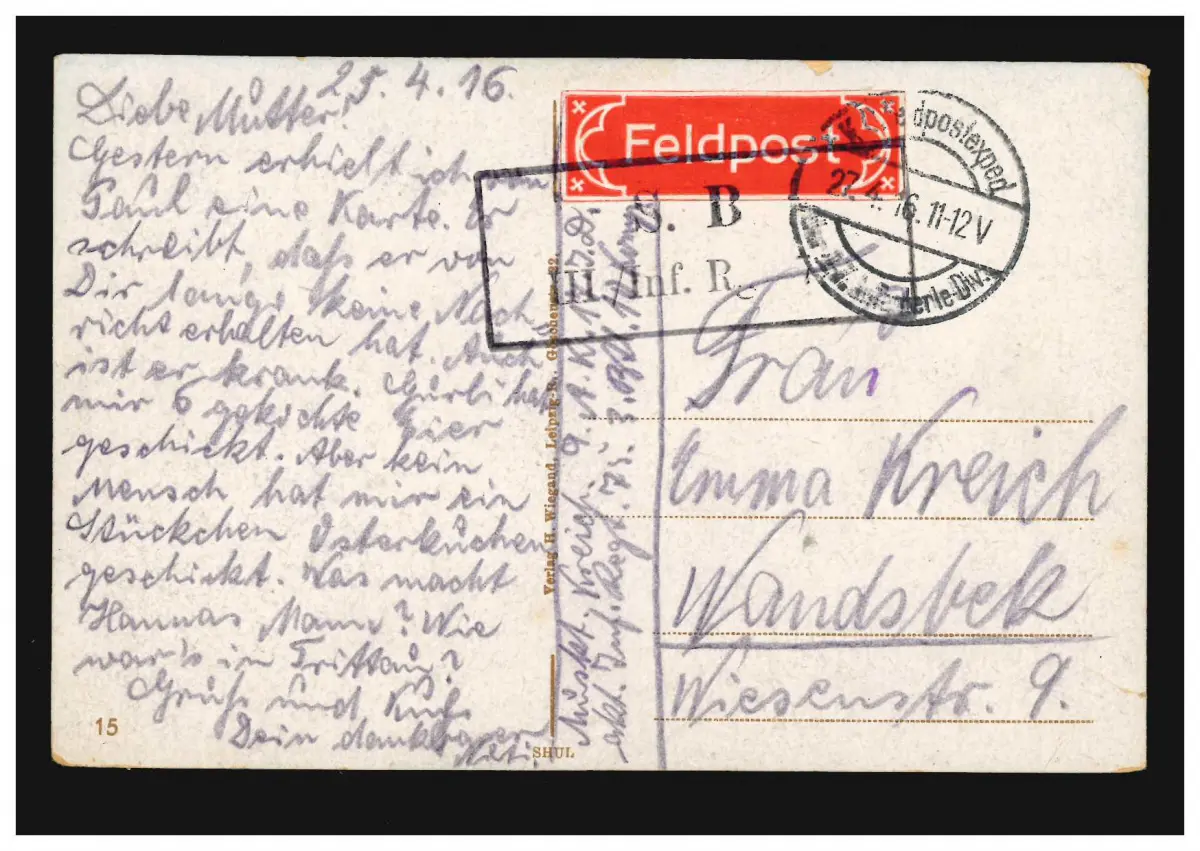 25.4.16.
Liebe Mutter!
Gestern erhielt ich von
Paul eine Karte. Er
schreibt, daß er von
Dir lange keine Nach-
richt erhalten hat. Auch
ist er krank. hat
mir 6 gekochte Eier
geschickt. Aber kein
Mensch hat mir ein
Stückchen Osterkuchen
geschickt. Was macht
Hannas Mann? Wie
war's in Trittau?
Gruß und Kuß
Dein dankbarer
15
Verlag H. Wiegand, Leipzig-R.,
SHUL
Muskt. Kreich. 9. A. K. 17. D.
Inf. Regt. 75. 3.
Feldpost
S. B
III. Inf. R.
K. Feldpostexped
27.4.16. 11-12 V
Infanterie-Div.
Frau
Emma Kreich
Wandsbek
Wiesenstr. 9.